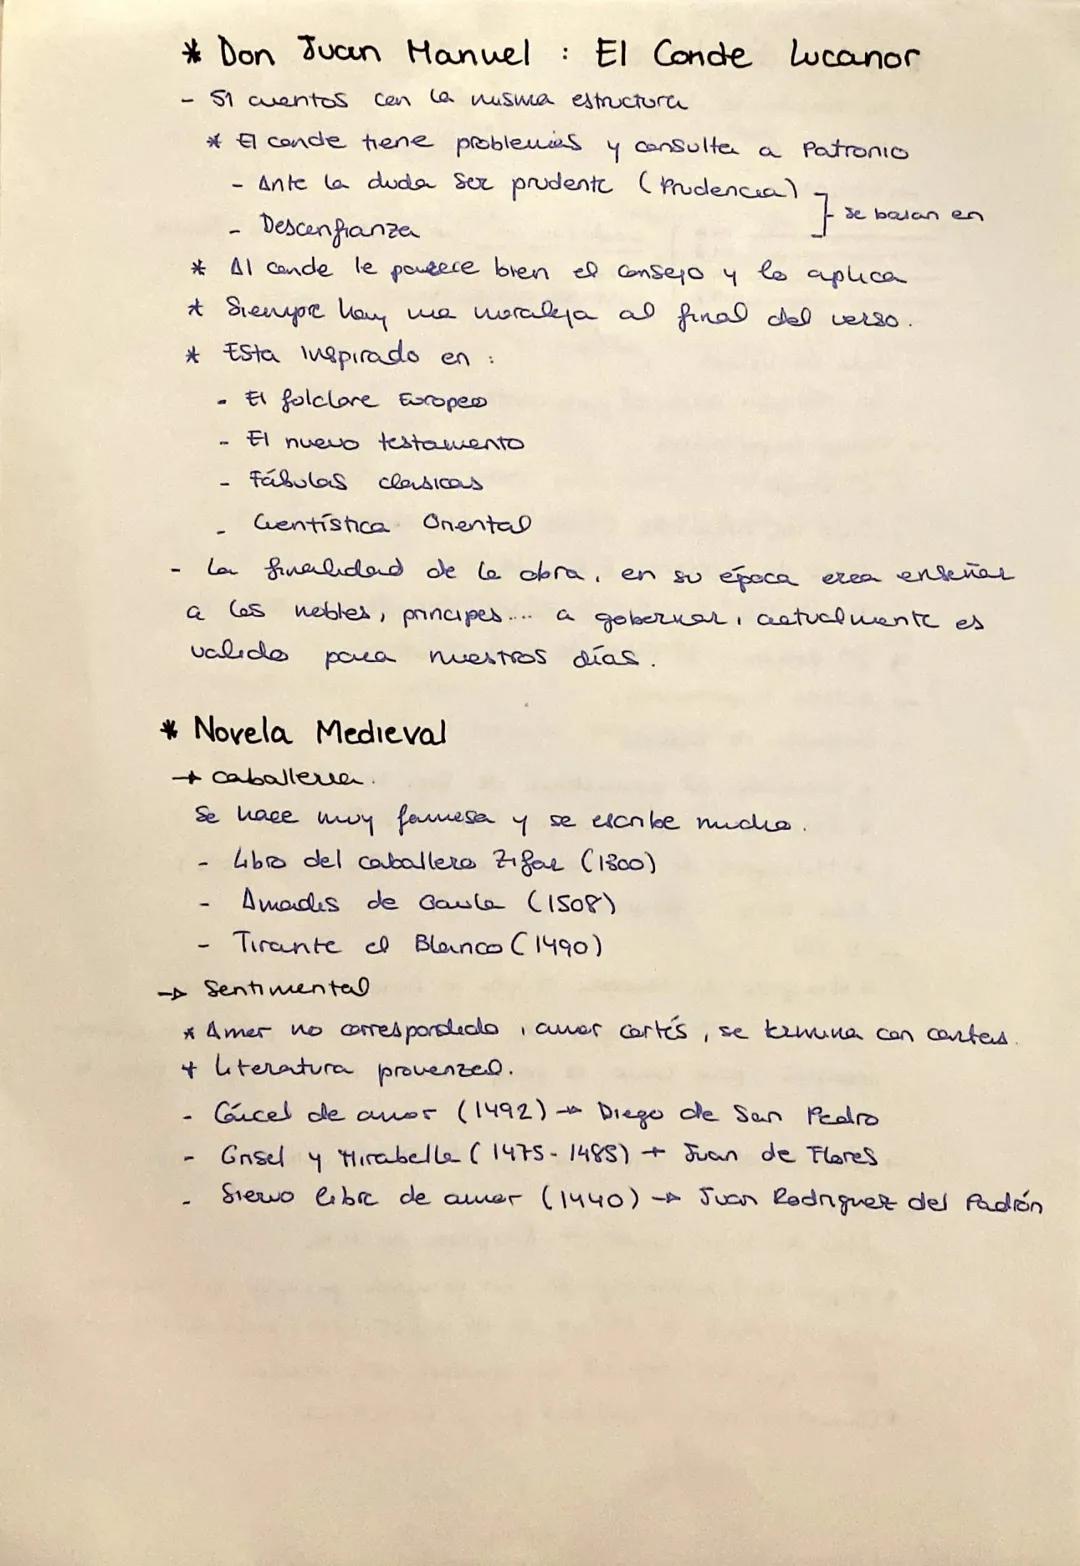 * Don Juan Manuel : El Conde Lucanor
- 51 cuentos con la misma estructura
* El conde tiene problemas y consulta a Patronio
- Ante la duda ser prudente (Prudencia)
- Desconfianza
se basan en
* Al conde le parece bien el consejo y lo aplica
* Siempre hay una moraleja al final del verso.
* Esta inspirado en :
- El folclore Europeo
- El nuevo testamento
- Fábulas clasicas
- Cuentística Oriental
- La finalidad de la obra, en su época era enseñar
a los nobles, principes.... a gobernar, actualmente es
valido para nuestros días.
* Novela Medieval
→ caballeria.
Se hace muy famosa y se escribe mucho.
- Libro del caballero Zifar (1300)
- Amadis de Gaula (1508)
- Tirante el Blanco (1490)
→ Sentimental
* Amor no correspondido, amor cortés, se termina con cartas.
+ Literatura provenzal.
- Cárcel de amor (1492) → Diego de San Pedro
- Grisel y Mirabella (1475-1485) → Juan de Flores
- Siervo libre de amor (1440) → Juan Rodriguez del Padrón